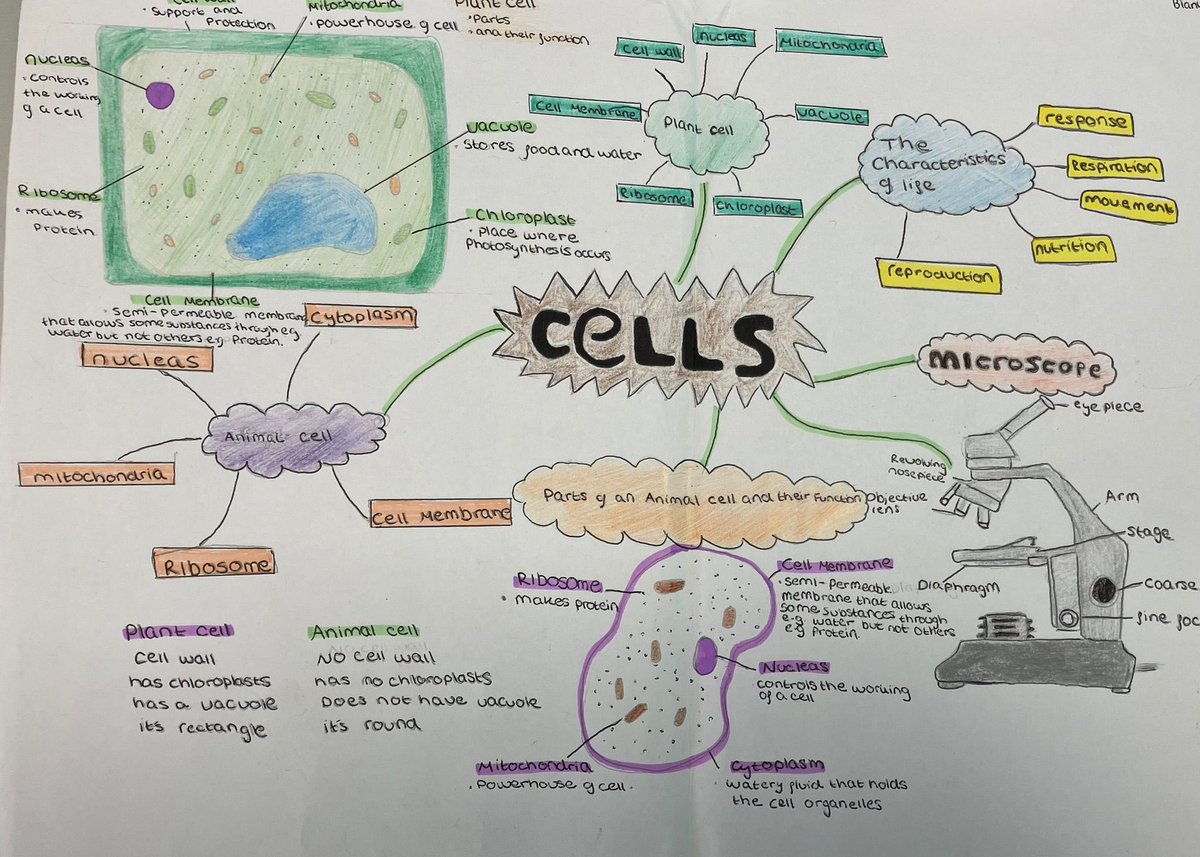 Cell wall
• Support and
Protection
Mitochondria
• powerhouse of cell
Plant cell
• Parts
• and their function
nucleas
• controls
the working
of a cell
Ribosome
• makes
Protein
vacuole
• stores food and water
Chloroplast
• Place where
photosynthesis occurs
Cell Membrane
• semi-permeable membrane
that allows some substances through eg
water but not others eg Protein.
Plant cell
Cell wall
nucleas
Mitochondria
Cell Membrane
vacuole
Ribosome
Chloroplast
The
Characteristics
of life
response
Respiration
movement
nutrition
reproduction
CELLS
Animal cell
Cytoplasm
nucleas
mitochondria
Ribosome
Cell Membrane
Microscope
eye piece
Revolving
nosepiece
Objective
lens
Arm
stage
Diaphragm
Coarse
fine foc
Parts of an Animal cell and their Function
Ribosome
• makes protein
Cell Membrane
• semi-permeable
membrane that allows
some substances through
e.g water but not others
eg Protein.
Nucleas
controls the working
of a cell
Mitochondria
• Powerhouse of cell.
Cytoplasm
• watery fluid that holds
the cell organelles
Plant cell
cell wall
has chloroplasts
has a vacuole
it's rectangle
Animal cell
No cell wall
has no chloroplasts
Does not have vacuole
it's round